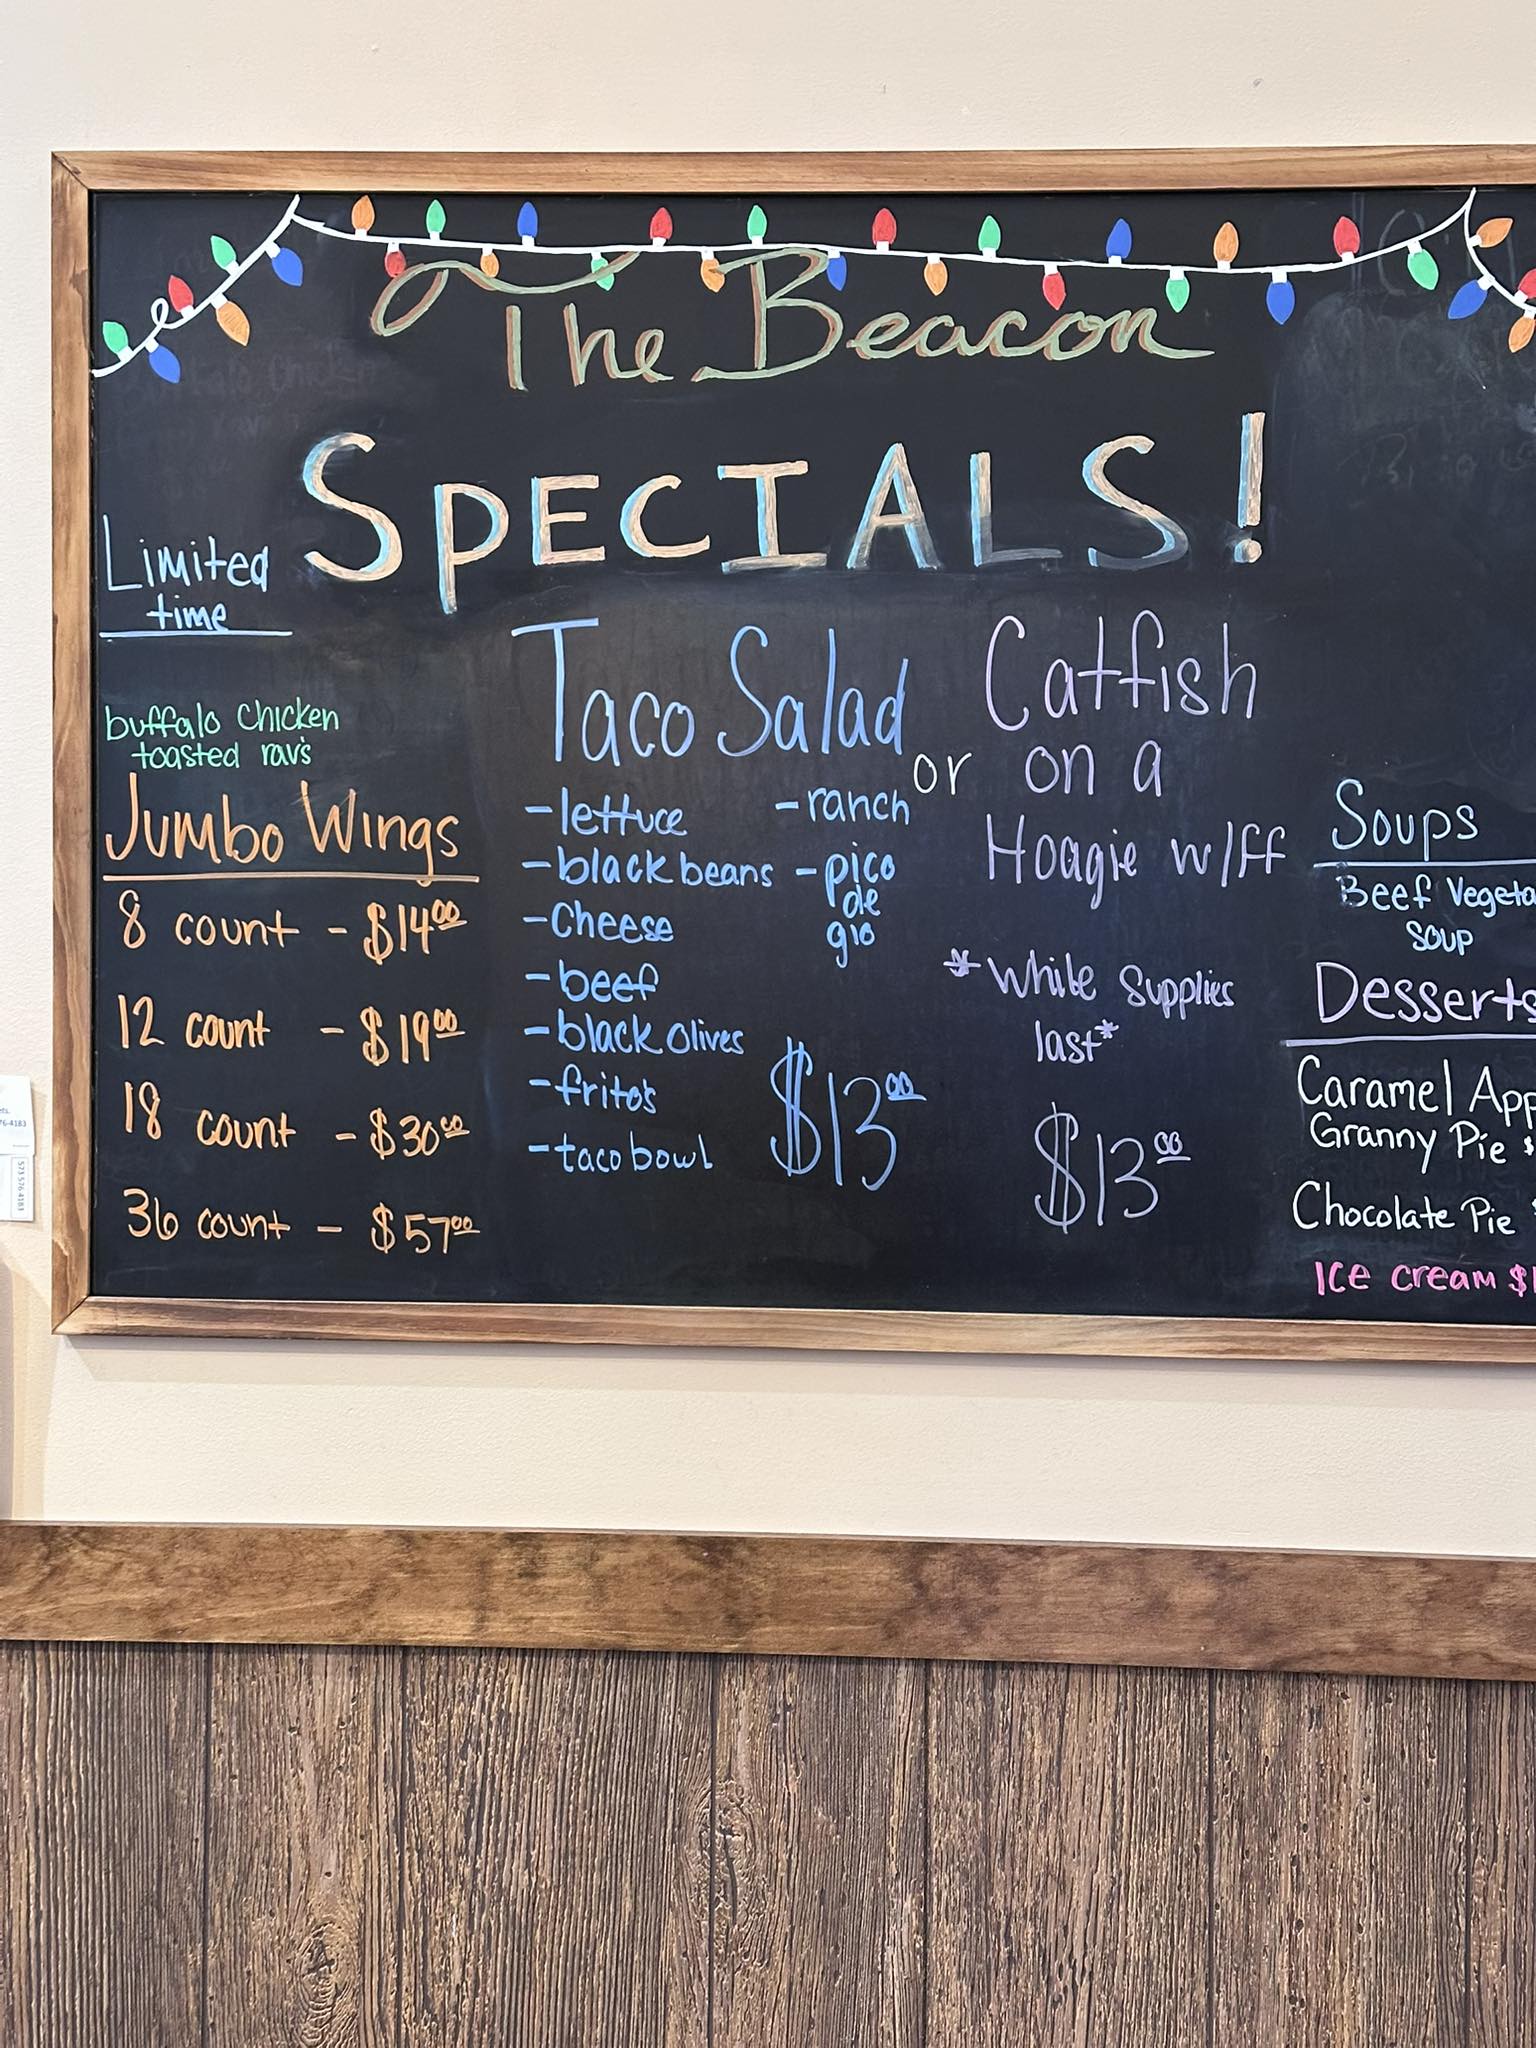 The Beacon
SPECIALS!
Limited
time
buffalo chicken
toasted rav's
Jumbo Wings
8 count - $14.00
12 count - $19.00
18 count - $30.00
36 count - $57.00
Taco Salad
-lettuce
-black beans
-cheese
-beef
-black olives
-frito's
-taco bowl
-ranch
-pico
de
gio
$13.00
or
Catfish
on a
Hoagie w/ff
*While Supplies
last*
$13.00
Soups
Beef Vegeta
soup
Desserts
Caramel App
Granny Pie $
Chocolate Pie
Ice cream $1
76-4183
573 576 4183